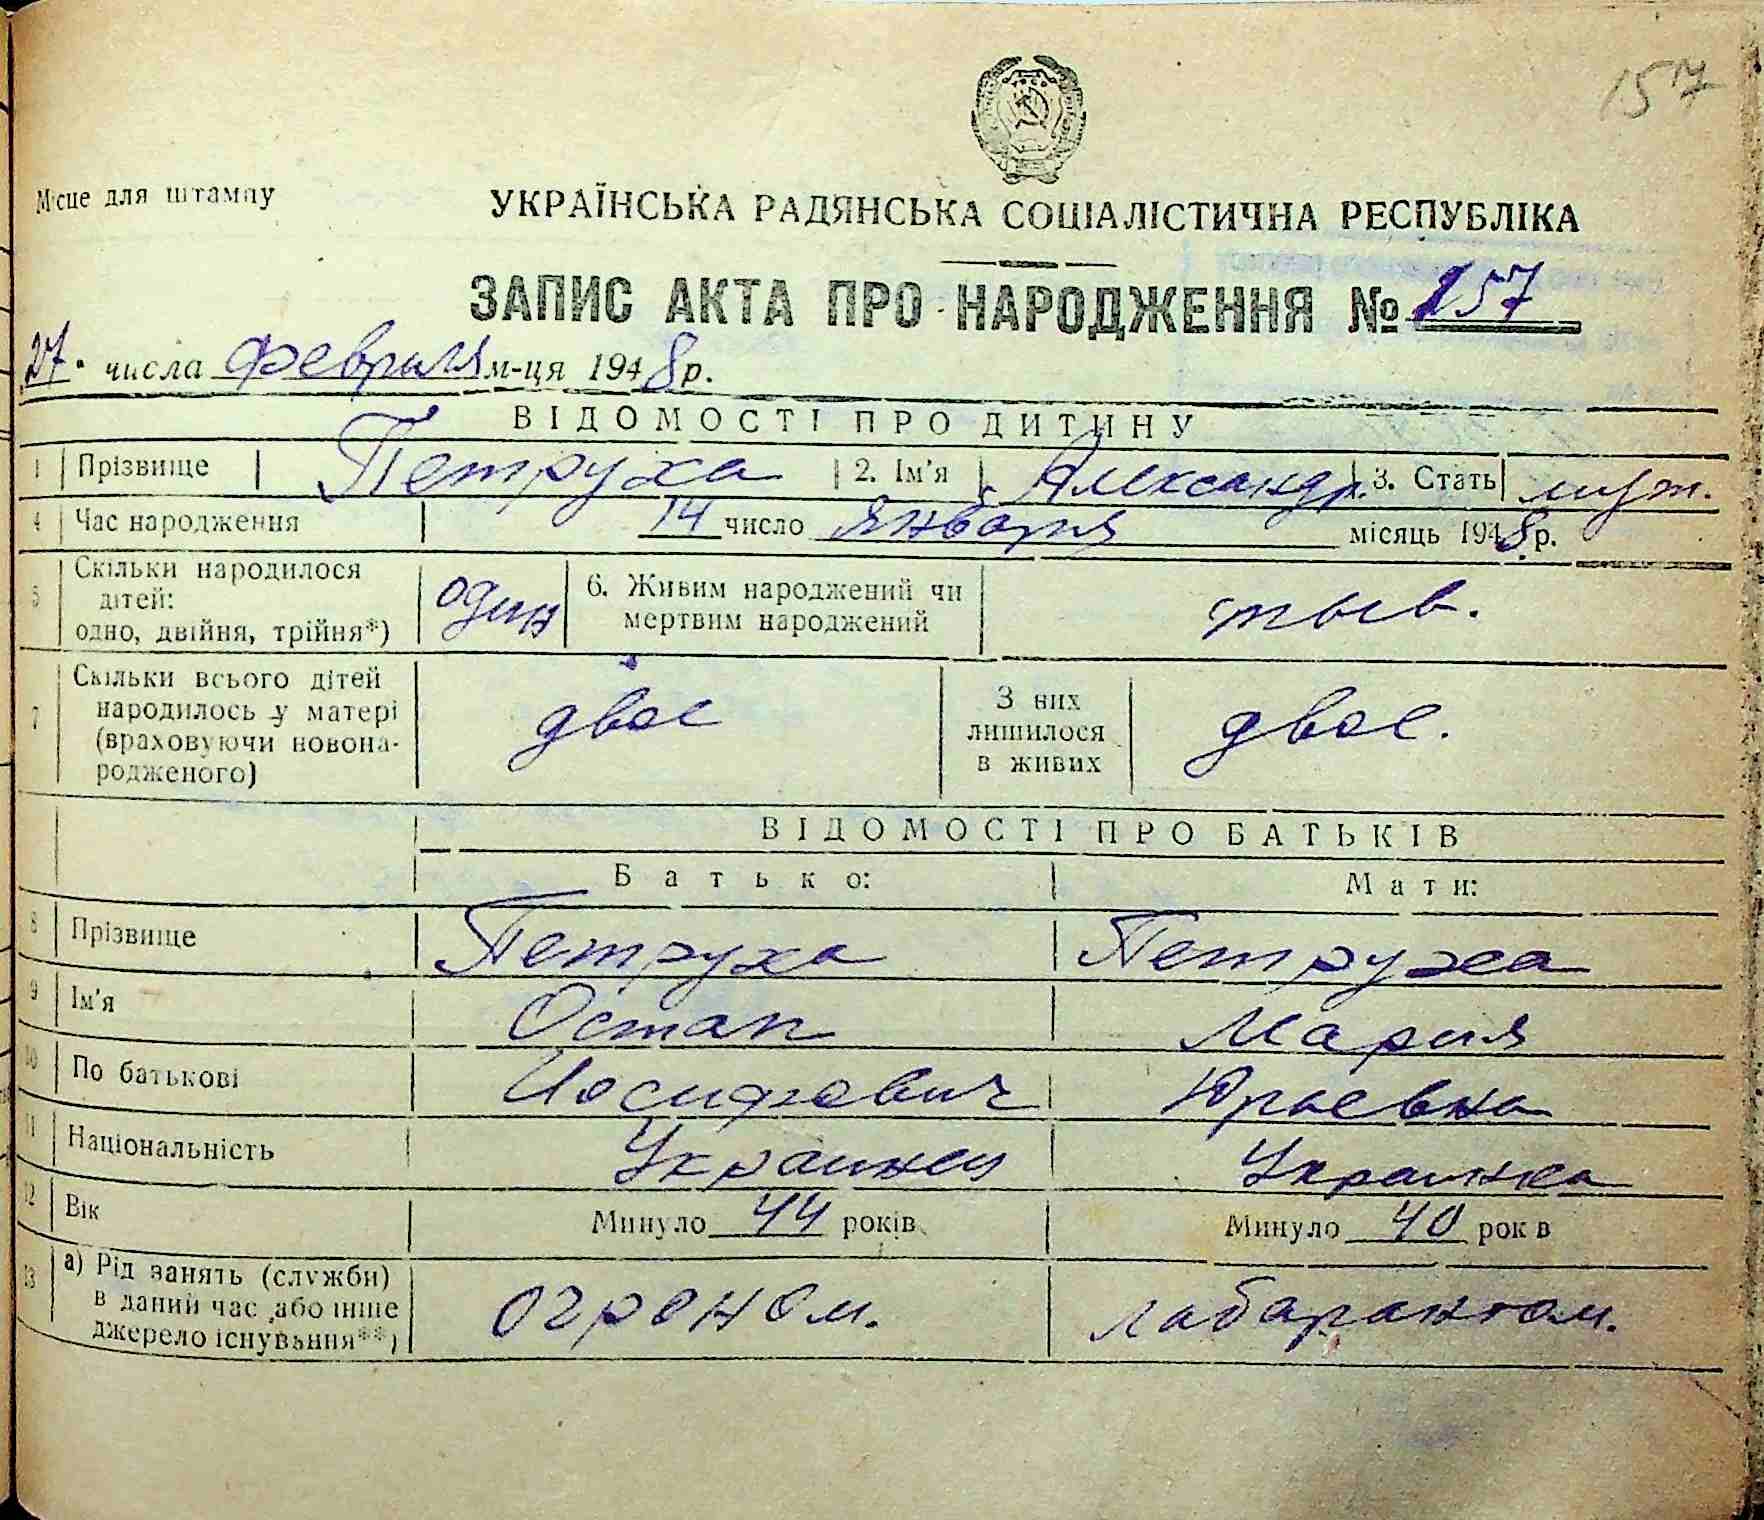 157
Місце для штампу
УКРАЇНСЬКА РАДЯНСЬКА СОЦІАЛІСТИЧНА РЕСПУБЛІКА
ЗАПИС АКТА ПРО НАРОДЖЕННЯ № 157
27. числа Февраля м-ця 1948 р.
ВІДОМОСТІ ПРО ДИТИНУ
1 Прізвище Петруха 2. Ім'я Александр. 3. Стать муж.
4 Час народження 14 число Января місяць 1948 р.
5 Скільки народилося дітей: одно, двійня, трійня*) один 6. Живим народжений чи мертвим народжений жив.
7 Скільки всього дітей народилось у матері (враховуючи новонародженого) двое З них лишилося в живих двое.
ВІДОМОСТІ ПРО БАТЬКІВ
Батько: Мати:
8 Прізвище Петруха Петруха
9 Ім'я Остап Мария
10 По батькові Иосифович Юрьевна
11 Національність Украинец Украинка
12 Вік Минуло 44 років Минуло 40 рок в
13 а) Рід занять (служби) в даний час або інше джерело існування**) огроном. лабарантом.